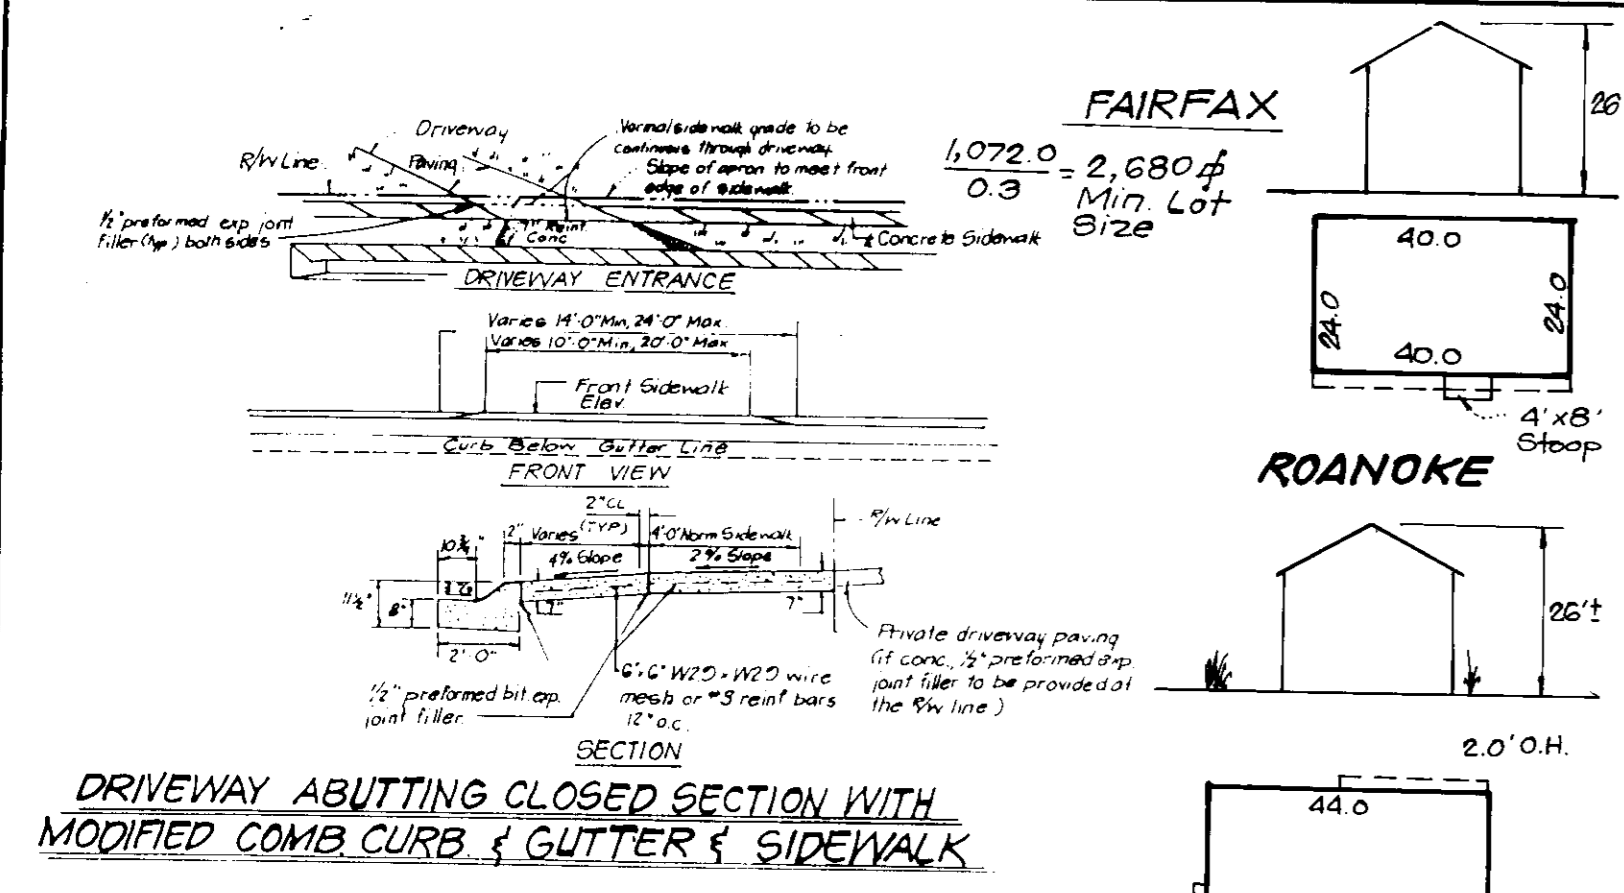 Driveway
Paving
R/W Line
Normal sidewalk grade to be
continuous through driveway
Slope of apron to meet front
edge of sidewalk
1/2" preformed exp joint
filler (typ) both sides
7" Reinf.
Conc
Concrete Sidewalk
DRIVEWAY ENTRANCE
Varies 14'-0" Min, 24'-0" Max.
Varies 10'-0" Min, 20'-0" Max
Front Sidewalk
Elev.
Curb Below Gutter Line
FRONT VIEW
2" CL
(TYP)
2"
Varies
4'-0" Norm Sidewalk
R/W Line
10 3/4"
4% Slope
2% Slope
11 1/2"
8"
7"
7"
2'-0"
1/2" preformed bit. exp.
joint filler
6"x6" W2.9 x W2.9 wire
mesh or #3 reinf bars
12" o.c.
Private driveway paving
(if conc., 1/2" preformed exp.
joint filler to be provided at
the R/W line)
SECTION
DRIVEWAY ABUTTING CLOSED SECTION WITH
MODIFIED COMB. CURB. & GUTTER & SIDEWALK
FAIRFAX
1,072.0
0.3
= 2,680 ⏍
Min. Lot
Size
26
40.0
24.0
24.0
40.0
4'x8'
Stoop
ROANOKE
26'±
2.0' O.H.
44.0